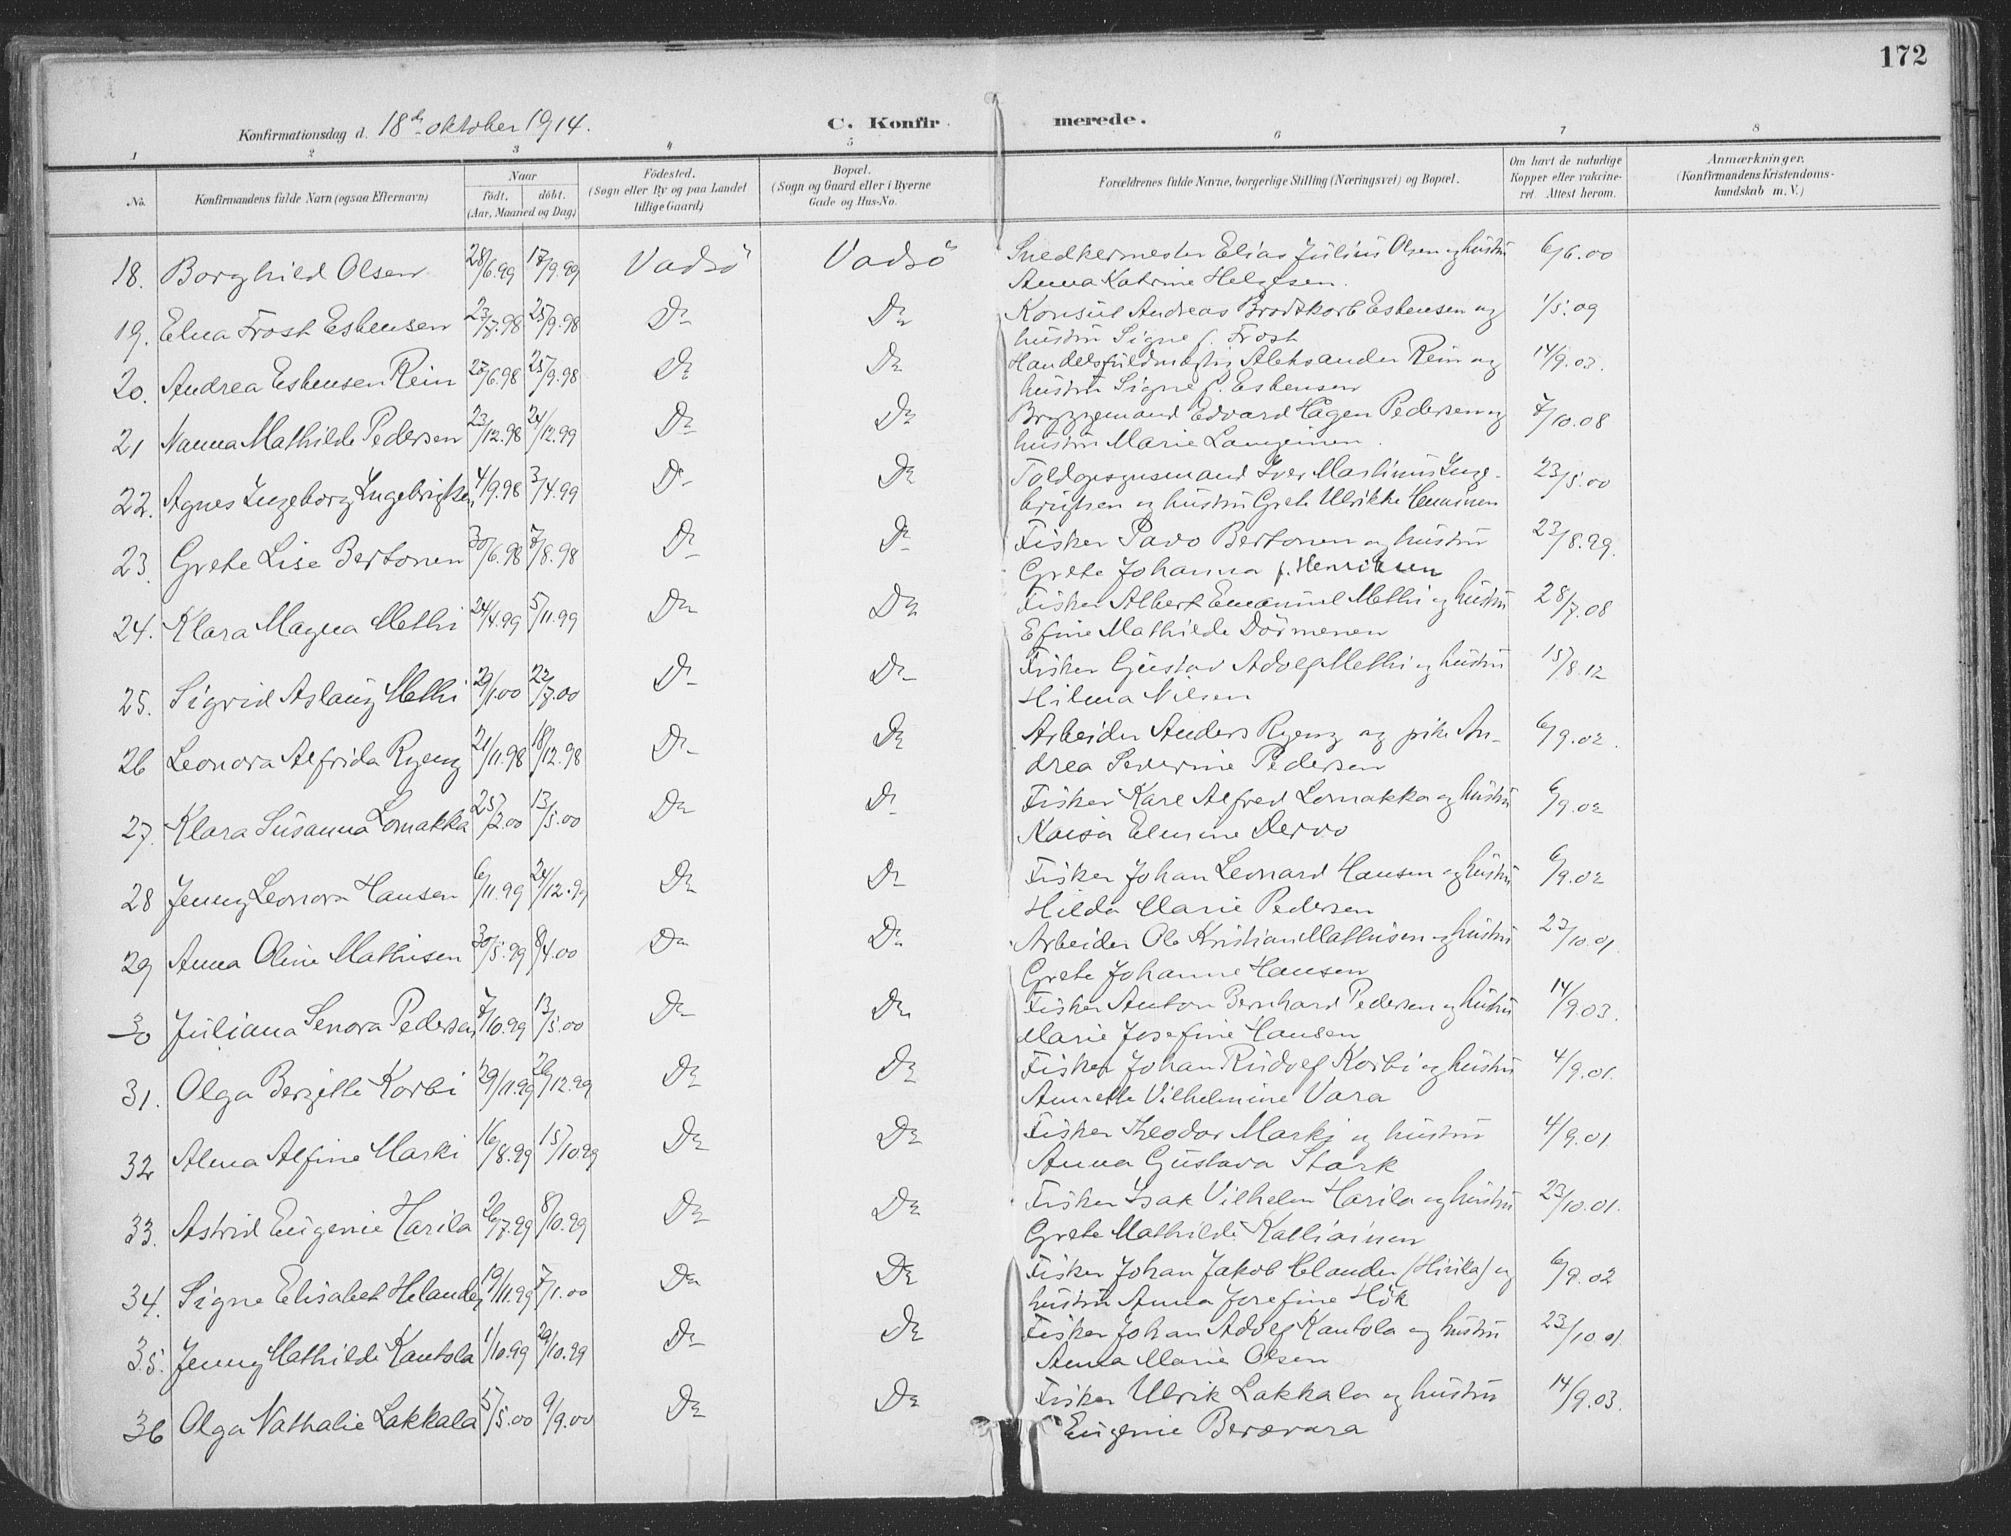 172
Konfirmationsdag d. 18de oktober 1914.
C. Konfirmerede.
1 2 3 4 5 6 7 8
No. Konfirmandens fulde Navn (ogsaa Efternavn) Naar født. døbt. (Aar, Maaned og Dag) Fødested. (Sogn eller By og paa Landet tillige Gaard) Bopæl. (Sogn og Gaard eller i Byerne Gade og Hus-No. Forældrenes fulde Navne, borgerlige Stilling (Næringsvei) og Bopæl. Om havt de naturlige Kopper eller vaccineret. Attest herom. Anmærkninger. (Konfirmandens Kristendomskundskab m. V.)
18. Borghild Olsen 28/6.99 17/9.99 Vadsö Vadsö Snedkermester Elias Julius Olsen og hustru 6/6.00
Anna Katrine Helgesen.
19. Elna Frost Esbensen 23/7.98 25/9.98 Do Do Konsul Andreas Brodtkorb Esbensen og 1/5.09
hustru Signe f. Frost
20. Andrea Esbensen Rein 27/6.98 25/9.98 Do Do Handelsfuldmægtig Aleksander Rein og 14/9.03.
hustru Signe f. Esbensen
21 Nanna Mathilde Pedersen 23/12.98 24/12.99 Do Do Bryggemand Edvard Hagen Pedersen og 7/10.08
hustru Marie
22. Agnes Ingeborg Ingebrigtsen 4/9.98 3/4.99 Do Do Toldopsynsmand Iver Martinus Inge- 23/5.00
brigtsen og hustru Grete Ulrikke Henninen
23. Grete Lise Bertonen 30/6.98 7/8.98 Do Do Fisker Pavo Bertonen og hustru 23/8.99.
Grete Johanna f. Henriksen
24. Klara Magna Methi 24/4.99 5/11.99 Do Do Fisker Albert Emanuel Methi og hustru 28/7.08
Efine Mathilde Dörmenen
25. Sigrid Aslaug Methi 29/1.00 22/7.00 Do Do Fisker Gustav Adolf Methi og hustru 15/8.12
Hilma Nilsen
26 Leonora Alfrida Ryeng 21/11.98 18/12.98 Do Do Arbeider Anders Ryeng og pike An- 6/9.02.
drea Severine Pedersen
27. Klara Susanna Lomakka 25/2.00 13/5.00 Do Do Fisker Karl Alfred Lomakka og hustru 6/9.02
Kaisa Elmine Dervo
28 Jenny Leonora Hansen 6/11.99 24/12.99 Do Do Fisker Johan Leonard Hansen og hustru 6/9.02
Hilda Marie Pedersen
29 Anna Oline Mathisen 30/5.99 8/4.00 Do Do Arbeider Ole Kristian Mathisen og hustru 23/10.01.
Grete Johanne Hansen
30 Juliana Senora Pedersen 7/10.99 13/5.00 Do Do Fisker Anton Bernhard Pedersen og hustru 14/9.03.
Marie Josefine Hansen
31. Olga Bergitte Korbi 29/11.99 26/12.99 Do Do Fisker Johan Rudolf Korbi og hustru 4/9.01.
Annette Vilhelmine Vara
32 Alma Alfine Marki 16/8.99 15/10.99 Do Do Fisker Theodor Marki og hustru 4/9.01.
Anna Gustava Stark
33. Astrid Eugenie Harila 26/7.99 8/10.99 Do Do Fisker Isak Vilhelm Harila og hustru 23/10.01.
Grete Mathilde Kalliainen
34. Signe Elisabet Helander 19/11.99 7/1.00 Do Do Fisker Johan Jakob Helander (Hirila) og 6/9.02
hustru Anna Josefine Hök
35. Jenny Mathilde Kantola 1/10.99 29/10.99 Do Do Fisker Johan Adolf Kantola og hustru 23/10 01.
Anna Marie Olsen
36 Olga Nathalie Lakkala 5/5.00 9/9.00 Do Do Fisker Ulrik Lakkala og hustru 14/9.03.
Eugenie Beravara